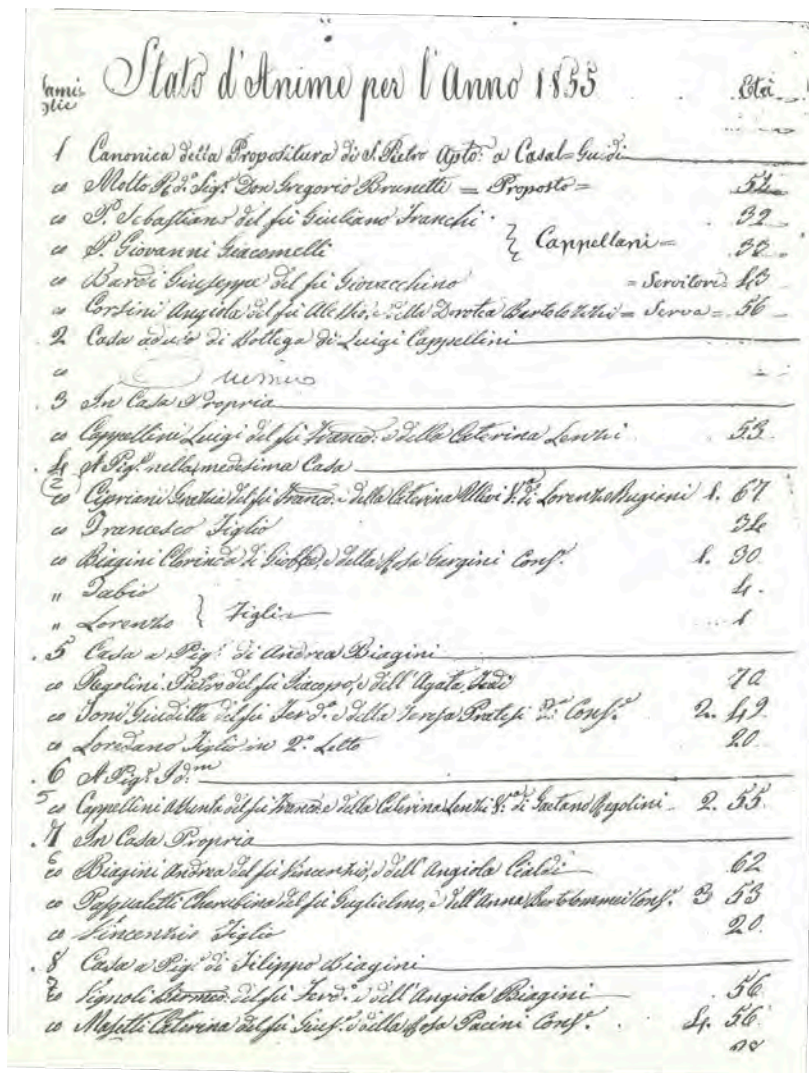 Fami=
glie
Stato d'Anime per l'Anno 1855
Età
1 Canonica della Propositura di S. Pietro Apto: a Casal=Guidi
" Molto Rdo. Sigr. Don Gregorio Brunetti = Proposto =
" P. Sebastiano del fu Giuliano Franchi 32
" P. Giovanni Giacomelli } Cappellani =
" Bardi Giuseppe del fu Giovacchino = Servitore = 43
" Corsini Angiola del fu Alessio, e della Dorotea Bertolozzi = Serva = 56
2 Casa ad uso di Bottega di Luigi Cappellini
" nemine
3 In Casa Propria
" Cappellini Luigi del fu Franco: e della Caterina Lenzi 53
4 A Pige. nella medesima Casa
(2) " Cipriani del fu Franco: e della Caterina Ulivi Va. di Lorenzo Bugiani 1. 67
" Francesco Figlio 34
" Biagini Clorinda di Giobbe, e della Rosa Gargini Conse. 1. 30
" Fabio 4.
" Lorenzo } Figli 1
5 Casa a Pige. di Andrea Biagini
" Regolini Pietro del fu Iacopo, e dell'Agata 70
" Toni Giuditta del fu Ferdo. e della Teresa Pratesi Conse. 2. 49
" Loredano Figlio in 2o. Letto 20.
6 A Pige. Idm
5 " Cappellini Assunta del fu Franco: e della Caterina Lenzi Va. di Gaetano Regolini 2. 55
7 In Casa Propria
6 " Biagini Andrea del fu Vincenzio, e dell'Angiola Cialdi 62
" Pasqualetti Cherubina del fu Guglielmo, e dell'Anna Bartolommei Conse. 3 53
" Vincenzio Figlio 20.
8 Casa a Pige. di Filippo Biagini
7 " Vignoli del fu Ferdo. e dell'Angiola Biagini 56
" Masetti Caterina del fu Giuse. e della Rosa Pacini Conse. 4. 56